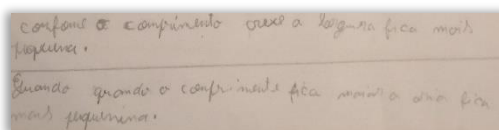 conforme o comprimento cresce a largura fica mais
pequena.
Quando quando o comprimento fica maior a área fica
mais pequenina.